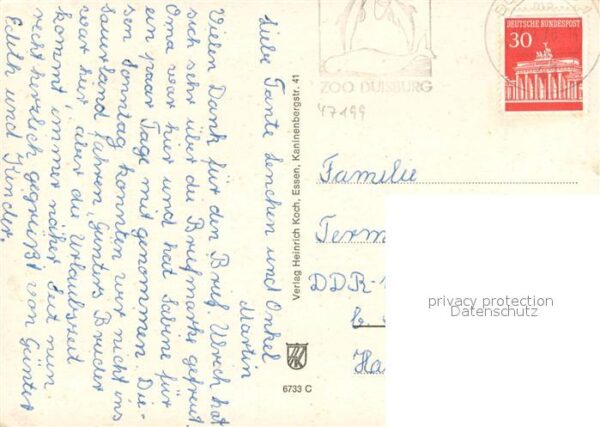 Liebe Tante Lenchen und Onkel
Martin
Vielen Dank für den Brief. Ulrich hat
sich sehr über die Briefmarke gefreut.
Oma war hier und hat Sabine für
ein paar Tage mit genommen. Die-
sen Sonntag konnten wir nicht ins
Sauerland fahren, Günters Bruder
war hier, aber die Urlaubszeit
kommt immer näher. Seid nun
recht herzlich gegrüßt von Günter
Edith und Kinder.
Verlag Heinrich Koch, Essen, Kaninenbergstr. 41
6733 C
ZOO DUISBURG
47199
DEUTSCHE BUNDESPOST
30
Familie
Term
DDR-1
b
Ha
privacy protection
Datenschutz